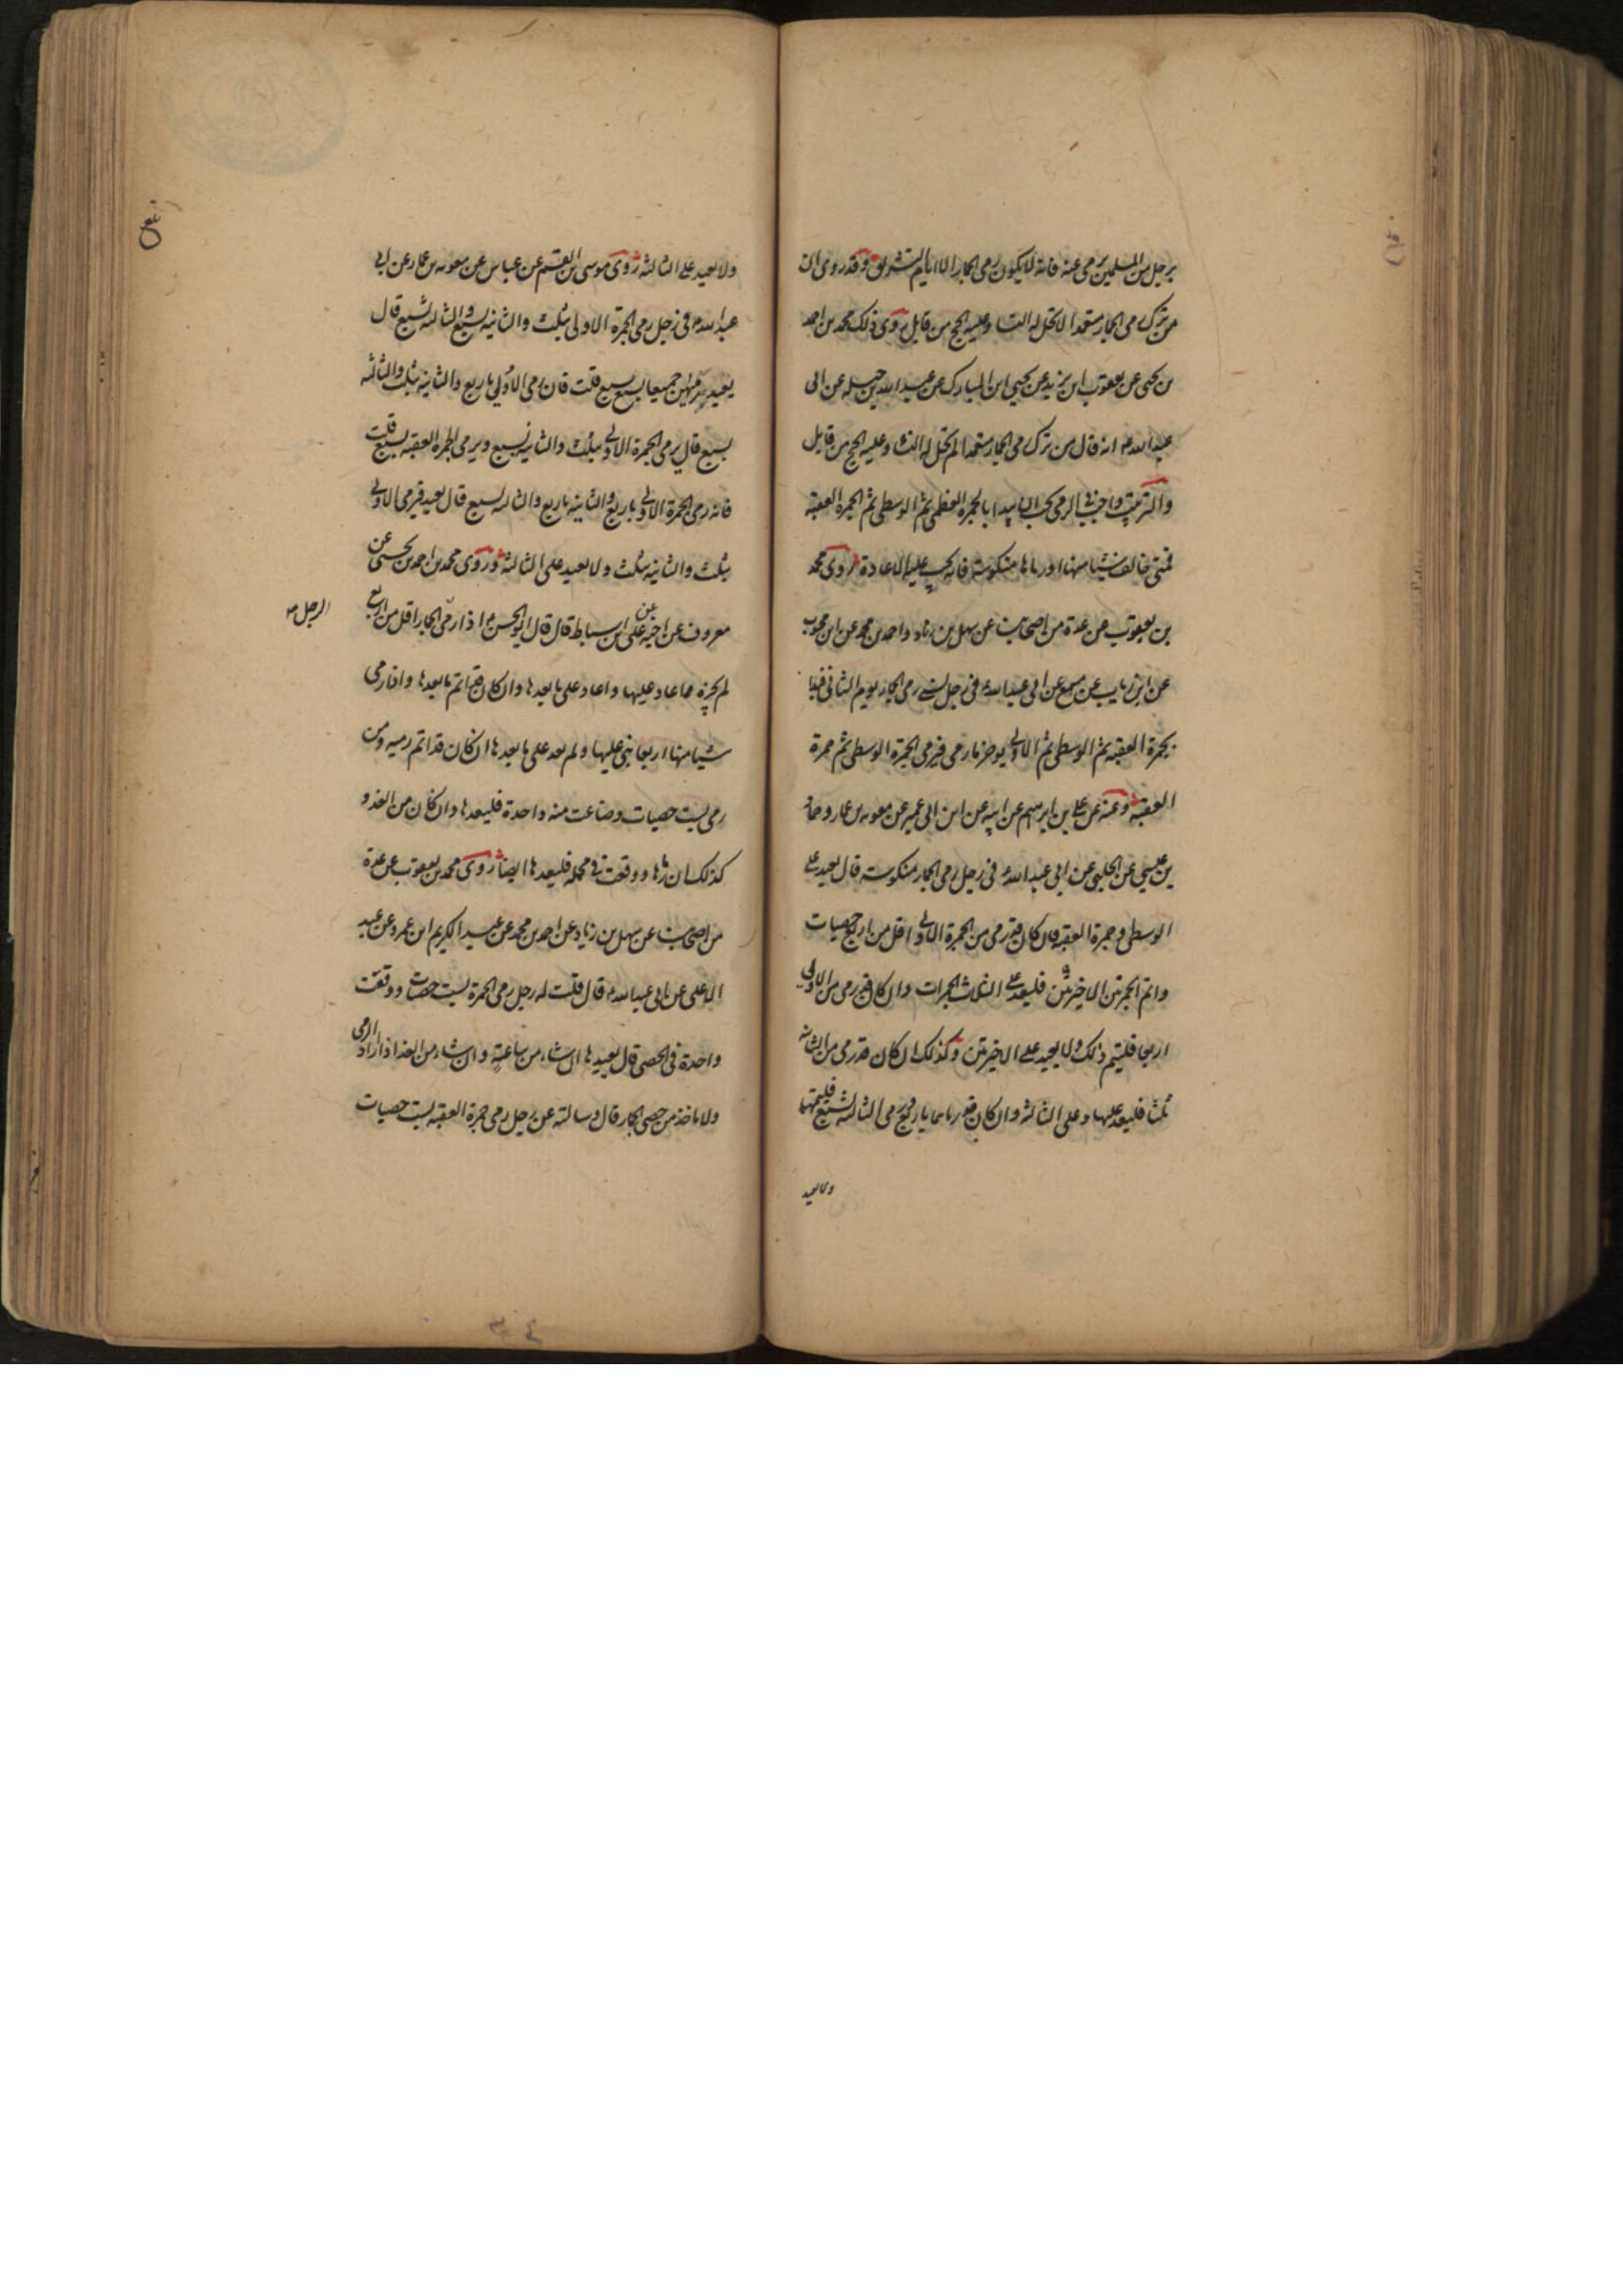 برجل من المسلمين يرمى عنه فانه لا يكون رمى الجمار الا ايام التشريق وقد روى ان
من ترك رمى الجمار متعمدا لا تحل له النساء وعليه الحج من قابل روى ذلك محمد بن احمد
بن يحيى عن يعقوب ابن يزيد عن يحيى ابن المبارك عن عبد الله بن جبله عن ابى
عبد الله ع انه قال من ترك رمى الجمار متعمدا لم تحل له النساء وعليه الحج من قابل
والترتيب واجب فى الرمى يجب ان يبدا بالجمرة العظمى ثم الوسطى ثم الجمرة العقبة
فمتى خالف شيئا منها او رماها منكوسة فانه يجب عليه الاعادة روى محمد
بن يعقوب عن عدة من اصحابنا عن سهل بن زياد واحمد بن محمد عن ابن محبوب
عن ابن رياب عن مسمع عن ابى عبد الله ع فى رجل نسى رمى الجمار يوم الثانى فبدا
بجمرة العقبه ثم الوسطى ثم الاولى يوخر ما رمى فيرمى الجمرة الوسطى ثم جمرة
العقبة وعنه عن على بن ابرهيم عن ابيه عن ابن ابى عمير عن معويه بن عمار وحماد
بن عيسى عن الحلبى عن ابى عبد الله ع فى رجل رمى الجمار منكوسة قال يعيد على
الوسطى وجمرة العقبه فان كان قد رمى من الجمرة الاولى اقل من اربع حصيات
واتم الجمرتين الاخيرتين فليعد على الثلاث الجمرات وان كان قد رمى من الاولى
اربعا فليتم ذلك ولا يعيد على الاخيرتين وكذلك ان كان قد رمى من الثانيه
ثلثا فليعد عليها وعلى الثالثة وان كان قد رماها باربع ورمى الثالثة بسبع فليتمها
ولا يعيد
ولا يعيد على الثالثه روى موسى ابن القسم عن عباس عن معويه بن عمار عن ابى
عبد الله ع فى رجل رمى الجمرة الاولى بثلث والثانيه بسبع والثالثه بسبع قال
يعيد يرميهن جميعا بسبع سبع قلت فان رمى الاولى باربع والثانيه بثلث والثالثه
بسبع قال يرمى الجمرة الاولى بثلث والثانيه بسبع ويرمى الجمرة العقبه بسبع قلت
فانه رمى الجمرة الاولى باربع والثانيه باربع والثالثه بسبع قال يعيد فيرمى الاولى
بثلث والثانيه بثلث ولا يعيد على الثالثة وروى محمد بن احمد بن يحيى عن
معروف عن اخيه عن على ابن اسباط قال قال ابو الحسن ع اذا رمى الجمار اقل من اربع
الرجل صه
لم يجزه مما عاد عليها واعاد على ما بعدها وان كان قد اتم ما بعدها واذا رمى
شيئا منها اربعا بنى عليها ولم يعد على ما بعدها ان كان قد اتم رميه ومن
رمى بست حصيات وضاعت منه واحدة فليعدها وان كان من الغد و
كذلك ان رماها ووقعت فى محمله فليعدها ايضا روى محمد بن يعقوب عن عدة
من اصحابنا عن سهل بن زياد عن احمد بن محمد عن عبد الكريم ابن عمرو عن عبد
الاعلى عن ابى عبد الله ع قال قلت له رجل رمى الجمرة بست حصيات ووقعت
واحدة فى الحصى قال يعيدها ان شاء من ساعته وان شاء من الغد اذا اراد الرمى
ولا ياخذ من حصى الجمار قال وسالته عن رجل رمى جمرة العقبه بست حصيات